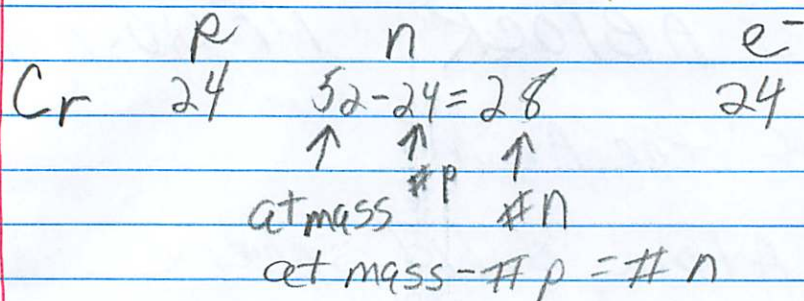 p n e⁻
Cr 24 52-24=28 24
↑ ↑ ↑
#p
at mass #n
at mass - # p = # n